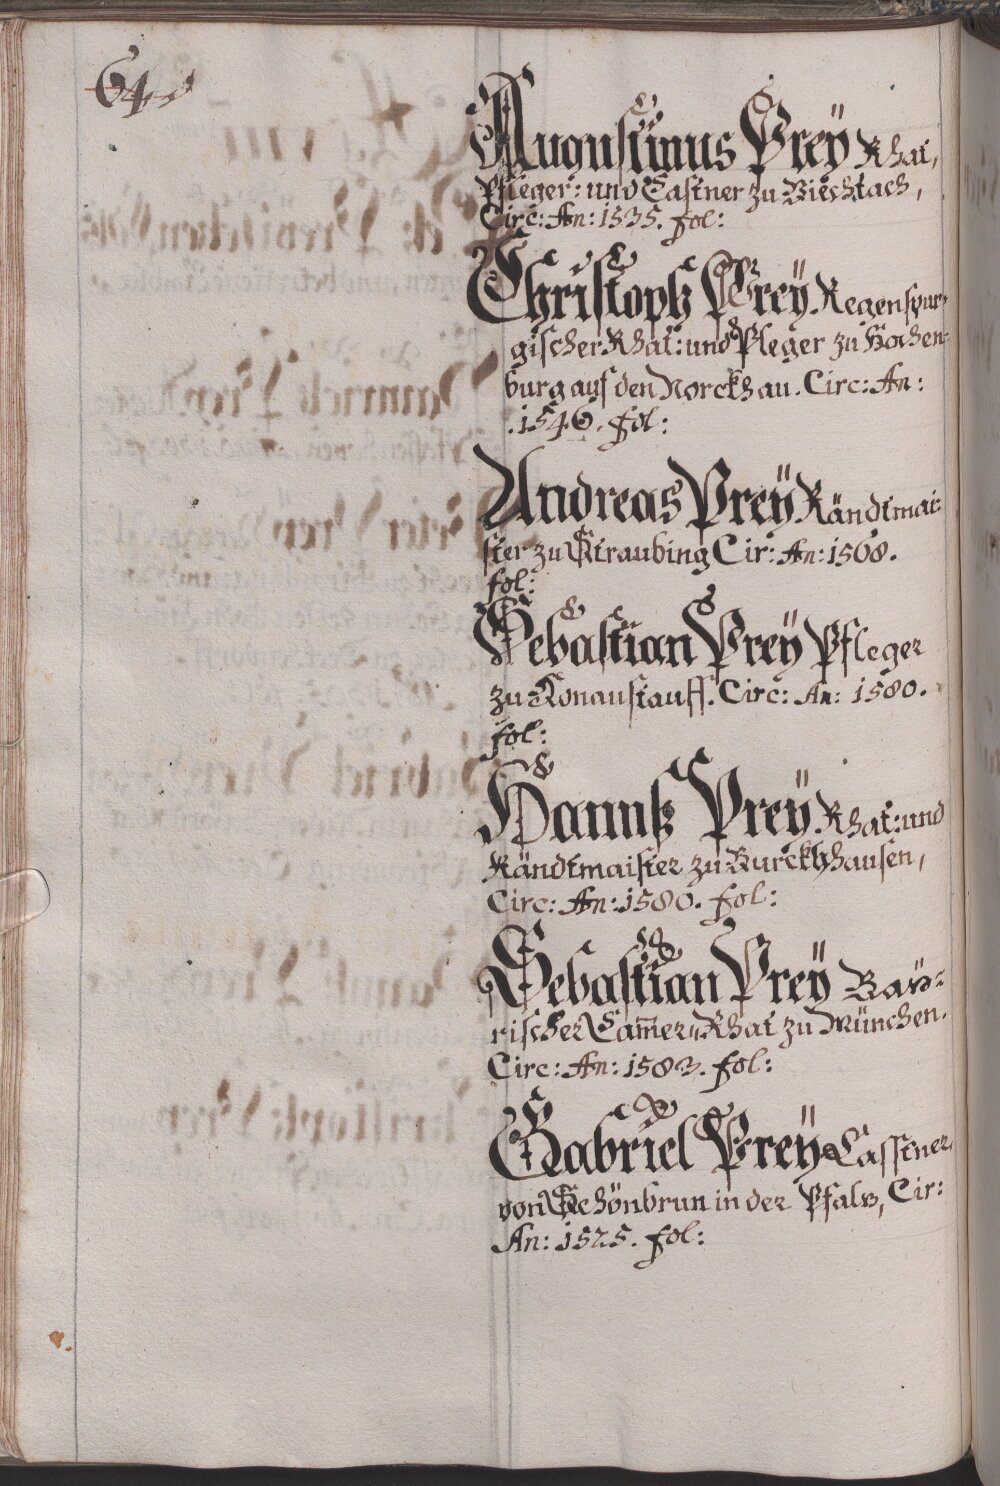 Augustinus Preÿ Rhat,
Pfleger: und Castner zu Viechtach,
Circ: An: 1535. fol:
Christoph Preÿ Regenspur-
gischer Rhat: und Pfleger zu Hochen-
burg auf den Norckhau. Circ: An:
.1546. fol:
Andreas Preÿ Rändtmai-
ster zu Straubing Cir: An: 1568.
fol:
Sebastian Preÿ Pfleger
zu Donaustauff. Circ: An: 1580.
fol:
Hannß Preÿ Rhat: und
Rändtmaister zu Burckhhausen,
Circ: An: 1580. fol:
Sebastian Preÿ Baÿ-
rischer Cam̄er Rhat zu München.
Circ: An: 1583. fol:
Gabriel Preÿ Casstner
von Schönbrun in der Pfalz, Cir:
An: 1525. fol: